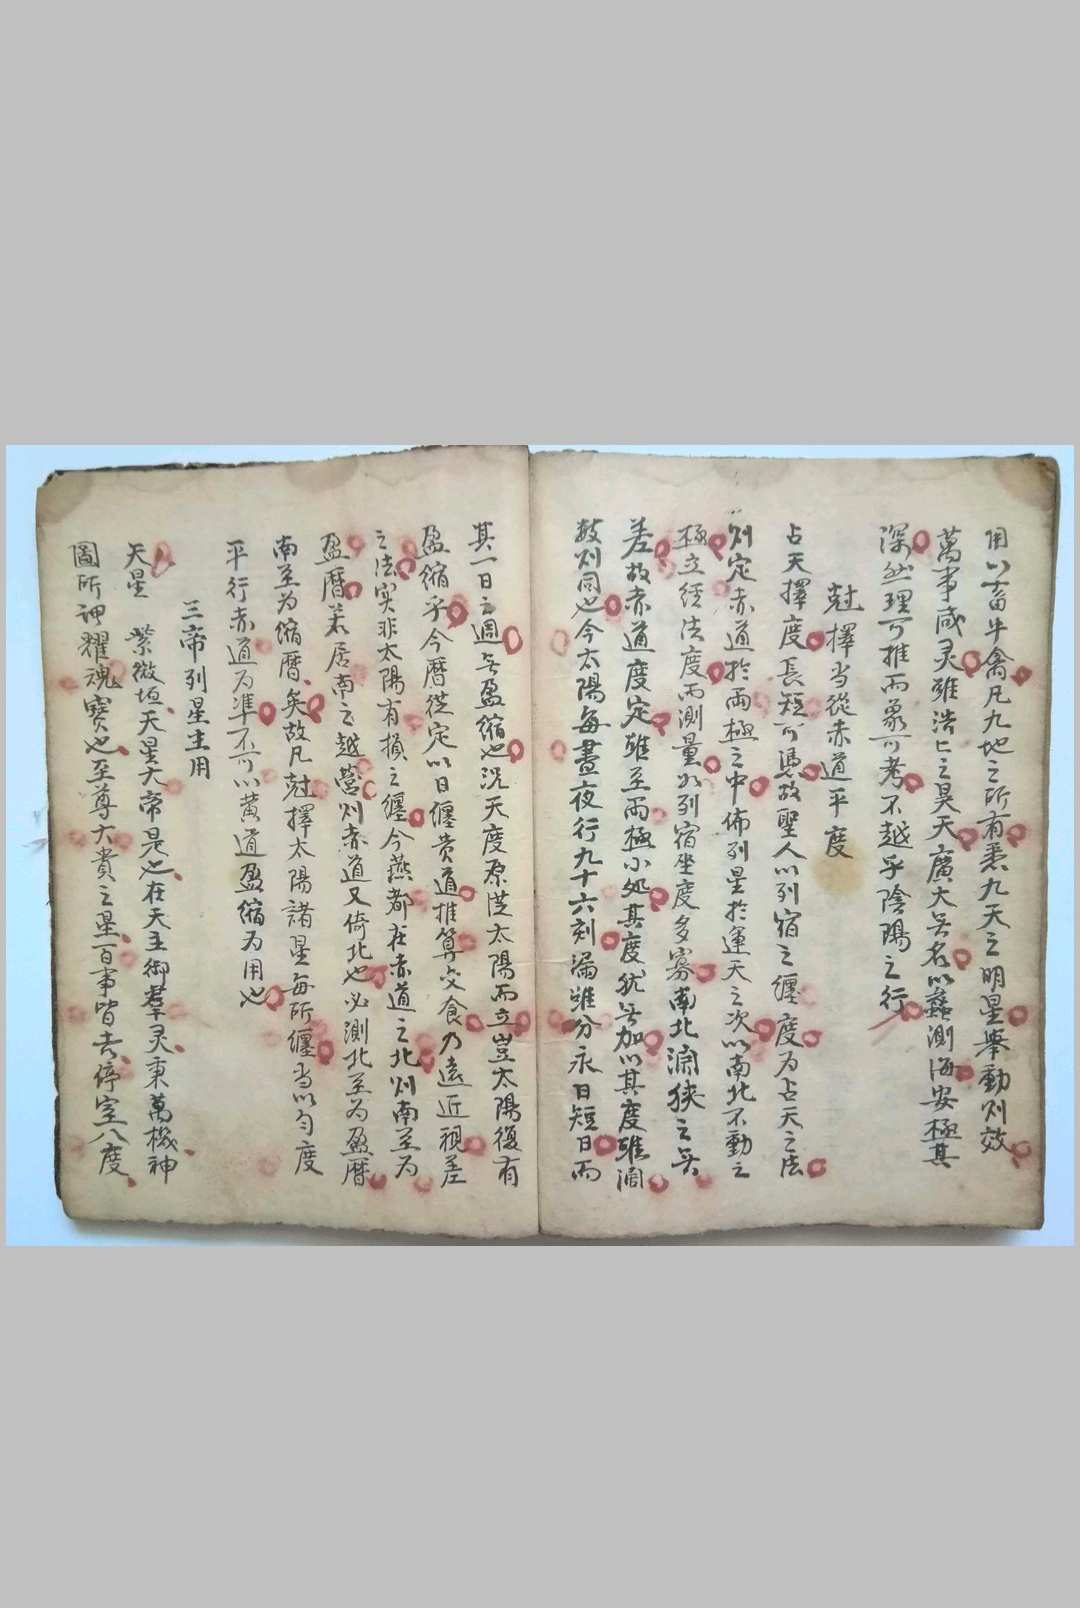 用以畜半禽凡九地之所有悉九天之明星舉動则效
萬事咸灵雖浩〻之昊天廣大无名以蠡測海安極其
深然理可推而象可考不越乎陰陽之行
尅擇当從赤道平度
占天擇度長短可馮故聖人以列宿之纏度为占天之法
则定赤道於兩極之中佈列星於運天之次以南北不動之
極立经法度而測量列宿坐度多寡南北濶狹之无
差故赤道度定雖至兩極小处其度犹无加以其度雖濶
数则同也今太陽每晝夜行九十六刻漏雖分永日短日而
其一日之週无盈縮也况天度原從太陽而立豈太陽復有
盈縮乎今曆從定以日纏黄道推算交食乃遠近視差
之法实非太陽有損之纏今燕都在赤道之北则南至为
盈曆若居南之越营则赤道又倚北也必測北至为盈曆
南至为缩曆矣故凡尅擇太陽諸星每所纏当以匀度
平行赤道为凖不可以黄道盈縮为用也
三帝列星主用
天星 紫微垣天星大帝是也在天主御羣灵秉萬機神
圖所神耀魂寳也至尊大貴之星百事皆吉停室八度